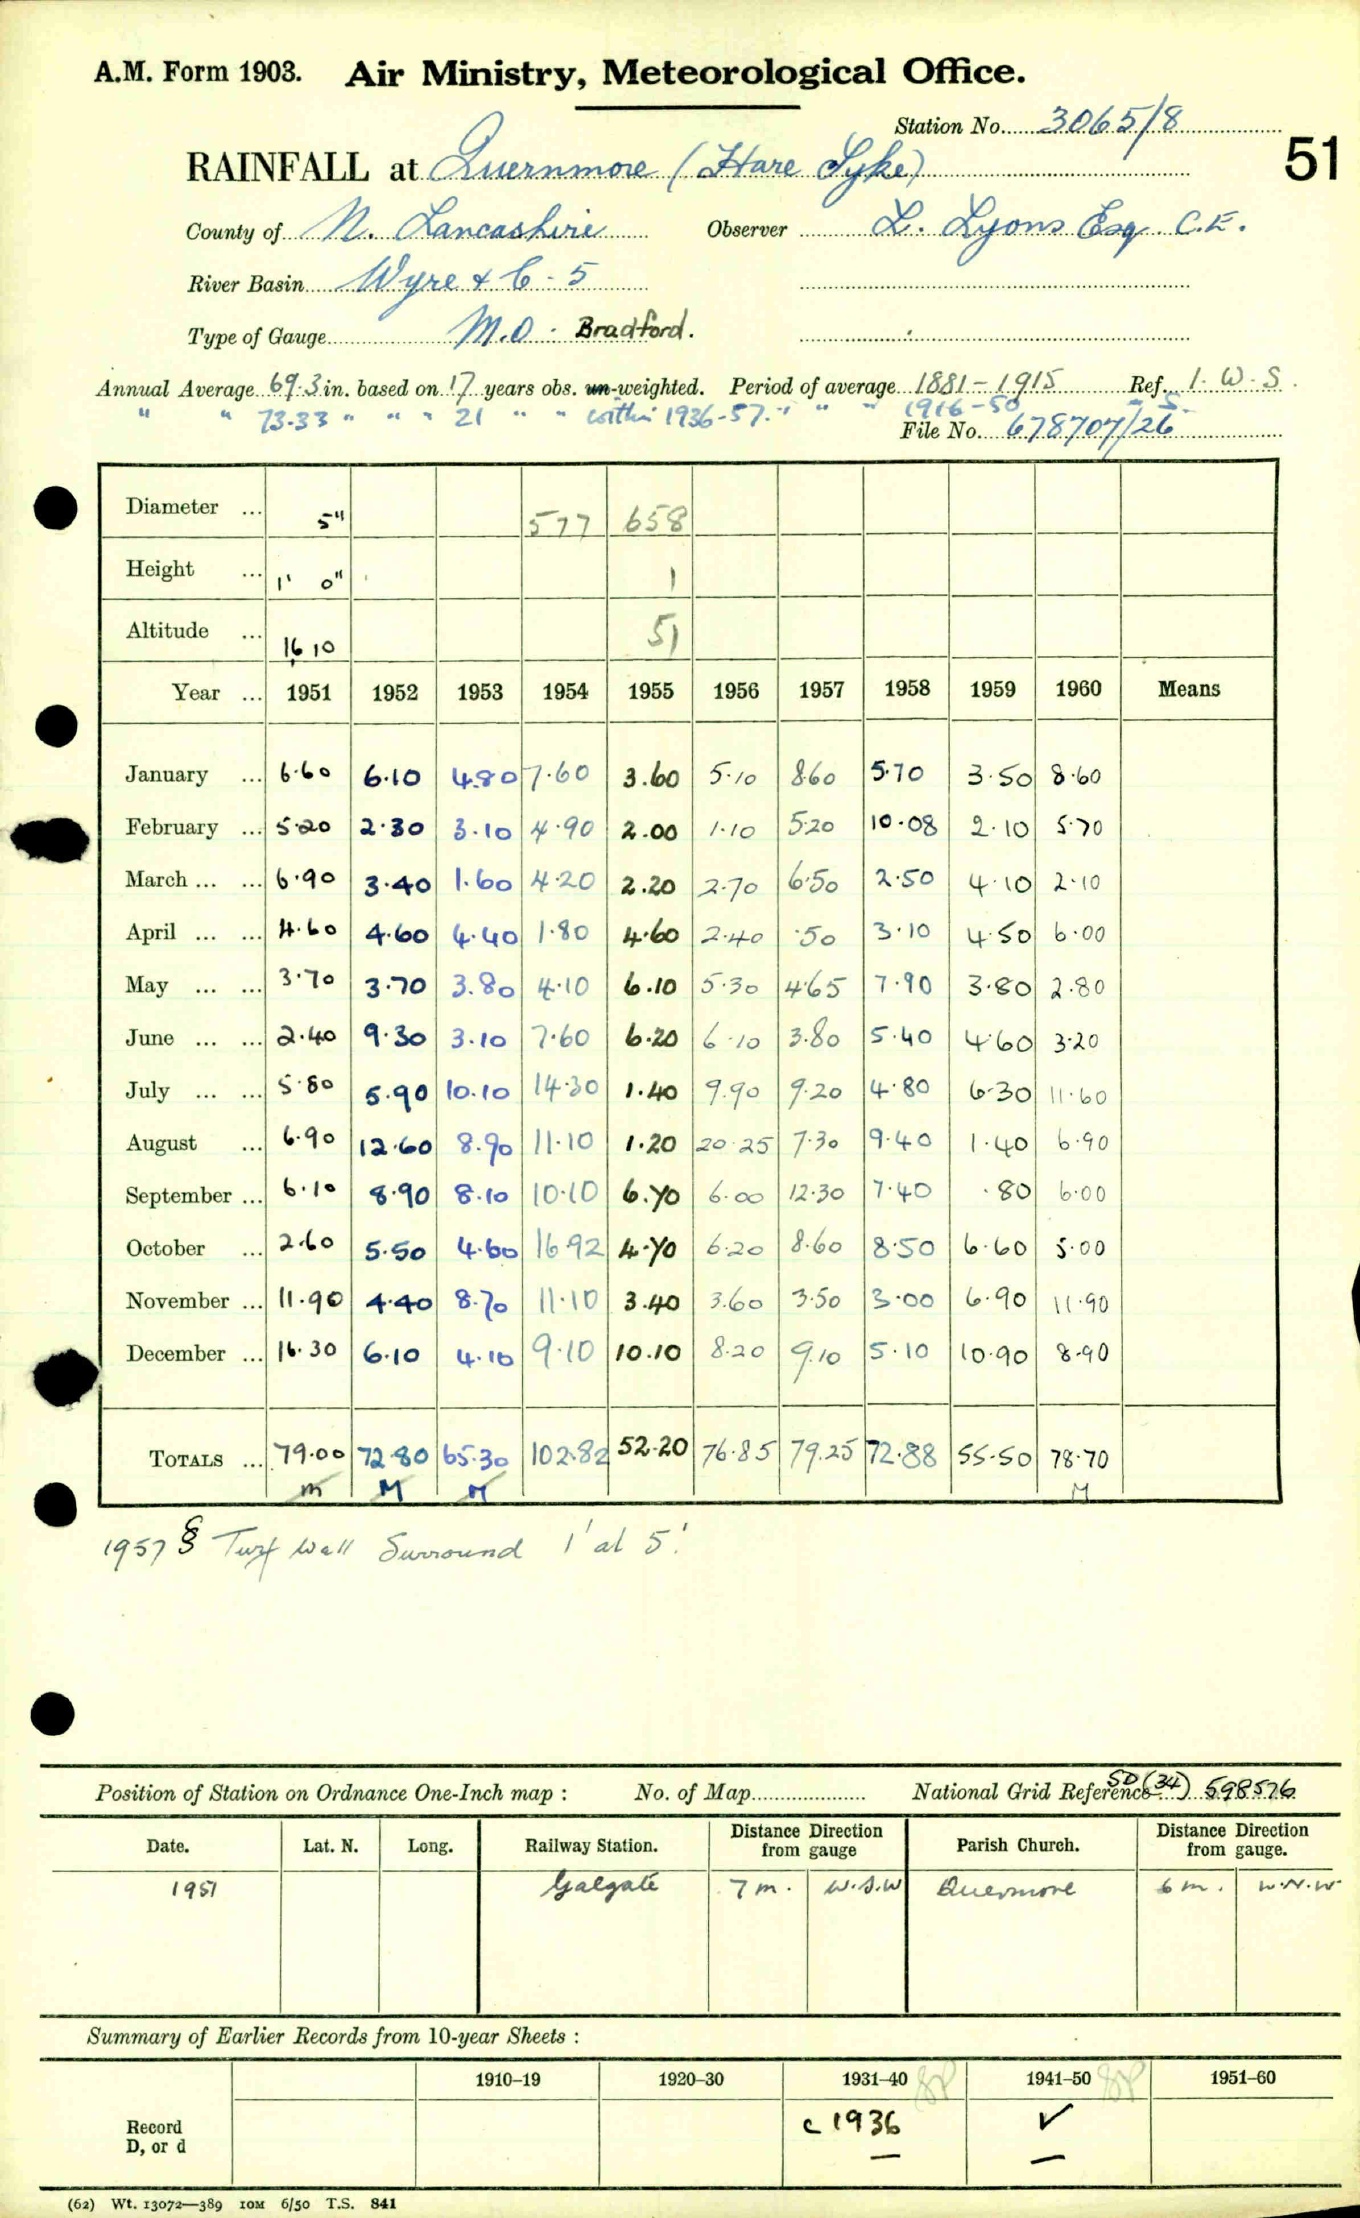 A.M. Form 1903. Air Ministry, Meteorological Office.
Station No. 3065/8
51
RAINFALL at Quernmore (Hare Syke)
County of N. Lancashire Observer L. Lyons Esq. C.E.
River Basin Wyre & C - 5
Type of Gauge M.O. Bradford.
Annual Average 69.3 in. based on 17 years obs. un-weighted. Period of average 1881-1915 Ref. I. W. S.
" " 73.33 " " " 21 " " within 1936-57. " " " 1916-50 " S.
File No. 678707/26
Diameter ... 5" 577 658
Height ... 1' 0" 1
Altitude ... 1610 51
Year ... 1951 1952 1953 1954 1955 1956 1957 1958 1959 1960 Means
January ... 6.60 6.10 4.80 7.60 3.60 5.10 8.60 5.70 3.50 8.60
February ... 5.20 2.30 3.10 4.90 2.00 1.10 5.20 10.08 2.10 5.70
March ... ... 6.90 3.40 1.60 4.20 2.20 2.70 6.50 2.50 4.10 2.10
April ... ... 4.60 4.60 4.40 1.80 4.60 2.40 .50 3.10 4.50 6.00
May ... ... 3.70 3.70 3.80 4.10 6.10 5.30 4.65 7.90 3.80 2.80
June ... ... 2.40 9.30 3.10 7.60 6.20 6.10 3.80 5.40 4.60 3.20
July ... ... 5.80 5.90 10.10 14.30 1.40 9.90 9.20 4.80 6.30 11.60
August ... 6.90 12.60 8.90 11.10 1.20 20.25 7.30 9.40 1.40 6.90
September ... 6.10 8.90 8.10 10.10 6.70 6.00 12.30 7.40 .80 6.00
October ... 2.60 5.50 4.60 16.92 4.70 6.20 8.60 8.50 6.60 5.00
November ... 11.90 4.40 8.70 11.10 3.40 3.60 3.50 3.00 6.90 11.90
December ... 16.30 6.10 4.10 9.10 10.10 8.20 9.10 5.10 10.90 8.90
TOTALS ... 79.00 72.80 65.30 102.82 52.20 76.85 79.25 72.88 55.50 78.70
m M M M
1957 § Turf Wall Surround 1' at 5'.
Position of Station on Ordnance One-Inch map : No. of Map National Grid Reference SD (34) 598576
Date. Lat. N. Long. Railway Station. Distance Direction from gauge Parish Church. Distance Direction from gauge.
1951 Galgate 7 m. W.S.W Quernmore 6 m. W.N.W.
Summary of Earlier Records from 10-year Sheets :
1910–19 1920–30 1931–40 1941–50 1951–60
Record c 1936 ✓
D, or d — —
(62) Wt. 13072—389 10M 6/50 T.S. 841